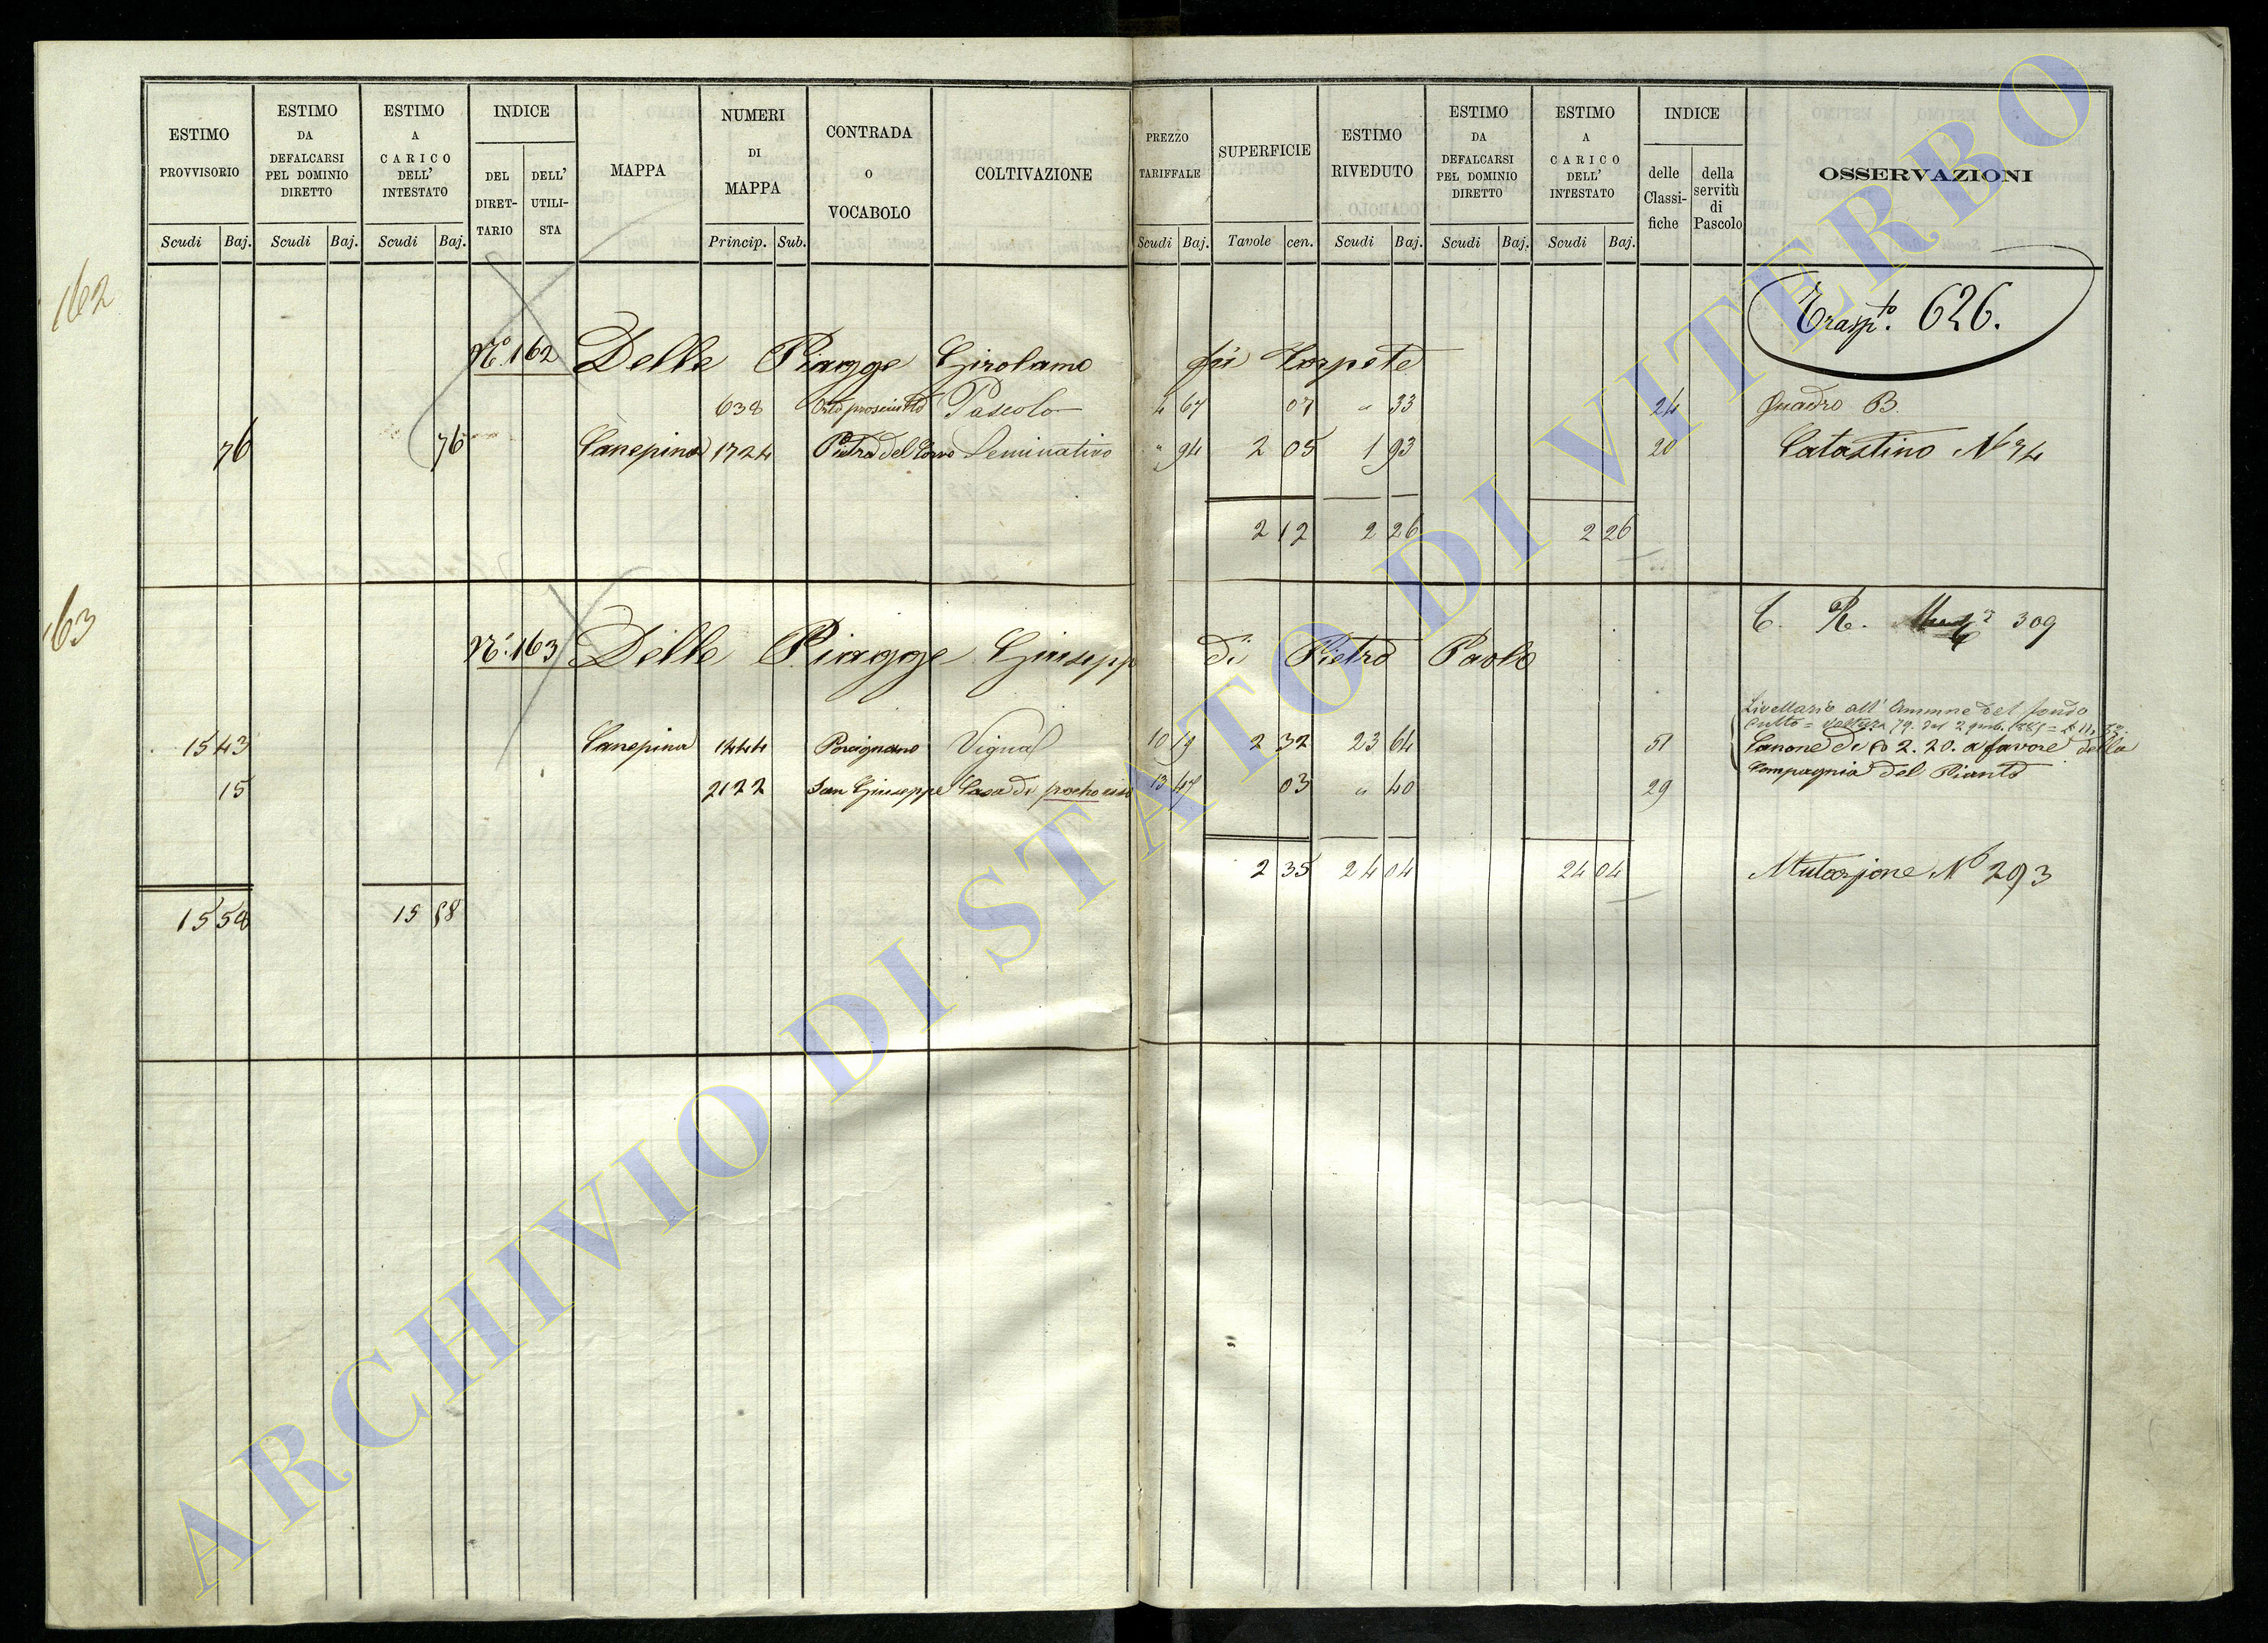 ESTIMO PROVVISORIO
Scudi Baj.
ESTIMO DA DEFALCARSI PEL DOMINIO DIRETTO
Scudi Baj.
ESTIMO A CARICO DELL' INTESTATO
Scudi Baj.
INDICE
DEL DIRET-TARIO
DELL' UTILI-STA
MAPPA
NUMERI DI MAPPA
Princip. Sub.
CONTRADA O VOCABOLO
COLTIVAZIONE
PREZZO TARIFFALE
Scudi Baj.
SUPERFICIE
Tavole cen.
ESTIMO RIVEDUTO
Scudi Baj.
ESTIMO DA DEFALCARSI PEL DOMINIO DIRETTO
Scudi Baj.
ESTIMO A CARICO DELL' INTESTATO
Scudi Baj.
INDICE
delle Classi-fiche
della servitù di Pascolo
OSSERVAZIONI
162
Trasp.to 626.
No. 162 Delle Piagge Girolamo fù Torpete
638 Pascolo 4 67 07 " 33 24 Quadro B.
76 76 Canepina 1724 Pietra del Corvo Seminativo " 94 2 05 1 93 20 Catastino No 74
2 12 2 26 2 26
163
C. R. 309
No. 163 Delle Piagge Giusepp di Pietro Paolo
Livellario all' Comune del fondo
15 43 Canepina 1444 Porcignano Vignal 10 19 2 32 23 64 51 Canone di 2.20. a favore della
Compagnia del Pianto
15 2122 San Giuseppe Casa di 13 47 03 " 40 29
2 35 24 04 24 04 Mutazione No 293
15 58 15 58
ARCHIVIO DI STATO DI VITERBO